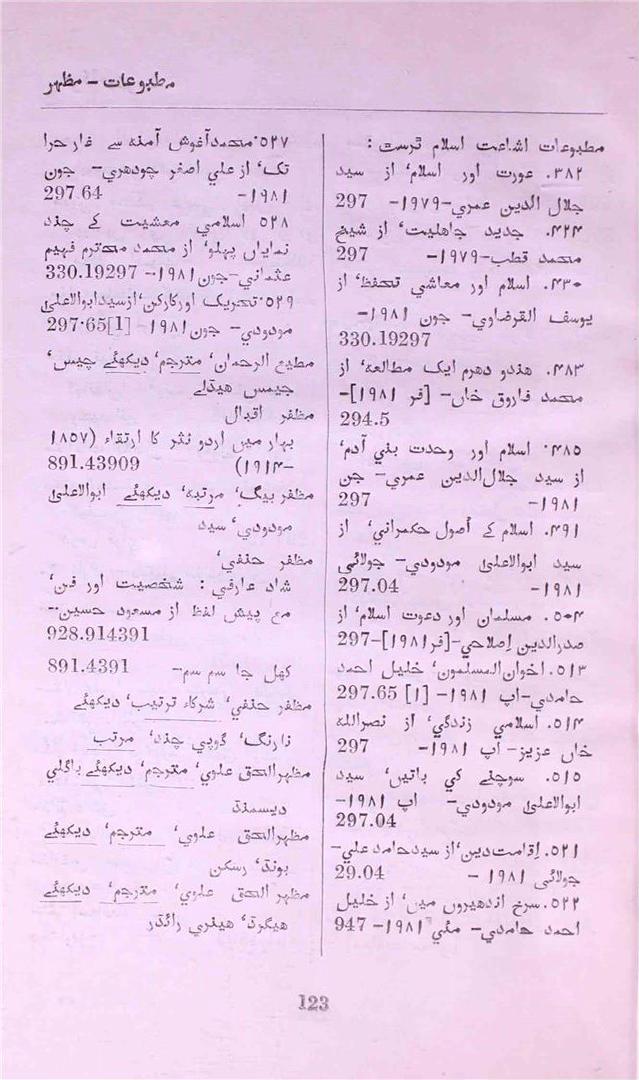 مطبوعات – مظہر
مطبوعات اشاعت اسلام ٹرسٹ :
۳۸۲. عورت اور اسلام، از سید
جلال الدین عمری–۱۹۷۹– 297
۴۲۴. جدید جاہلیت، از شیخ
محمد قطب–۱۹۷۹– 297
۴۳۰. اسلام اور معاشی تحفظ، از
یوسف القرضاوی– جون ۱۹۸۱–
330.19297
۴۸۳. ہندو دھرم ایک مطالعہ، از
محمد فاروق خاں– [فر ۱۹۸۱]–
294.5
۴۸۵. اسلام اور وحدت بنی آدم،
از سید جلال الدین عمری– جن
۱۹۸۱– 297
۴۹۱. اسلام کے اُصول حکمرانی، از
سید ابوالاعلیٰ مودودی– جولائی
۱۹۸۱– 297.04
۵۰۴. مسلمان اور دعوت اسلام، از
صدرالدین اِصلاحی–[فر۱۹۸۱]–297
۵۱۳. اخوان المسلمون، خلیل احمد
حامدی–اپ ۱۹۸۱– [1] 297.65
۵۱۴. اسلامی زندگی، از نصراللہ
خاں عزیز– اپ ۱۹۸۱– 297
۵۱۵. سوچنے کی باتیں، سید
ابوالاعلیٰ مودودی– اپ ۱۹۸۱–
297.04
۵۲۱. اِقامت دین، از سید حامد علی–
جولائی ۱۹۸۱ – 29.04
۵۲۲. سرخ اندھیروں میں، از خلیل
احمد حامدی– مئی ۱۹۸۱– 947
۵۲۷. محمد آغوش آمنہ سے غار حرا
تک، از علی اصغر چودھری– جون
۱۹۸۱– 297.64
۵۲۸ اسلامی معشیت کے چند
نمایاں پہلو، از محمد محترم فہیم
عثمانی–جون ۱۹۸۱– 330.19297
۵۲۹. تحریک اور کارکن، از سید ابوالاعلیٰ
مودودی– جون ۱۹۸۱– [1]297.65
مطیع الرحمان، مترجم، دیکھئے چیس،
جیمس ہیڈلے
مظفر اقبال
بہار میں اردو نثر کا ارتقاء (۱۸۵۷
–۱۹۱۴) 891.43909
مظفر بیگ، مرتبہ، دیکھئے ابوالاعلیٰ
مودودی، سید
مظفر حنفی،
شاد عارفی : شخصیت اور فن،
مع پیش لفظ از مسعود حسین–
928.914391
کھل جا سم سم– 891.4391
مظفر حنفی، شرکاء ترتیب، دیکھئے
نارنگ، گوپی چند، مرتب
مظہرالحق علوی، مترجم، دیکھئے باگلی
ڈیسمنڈ
مظہرالحق علوی، مترجم، دیکھئے
بونڈ، رسکن
مظہر الحق علوی، مترجم، دیکھئے
ہیگرڈ، ہینری رائڈر
123